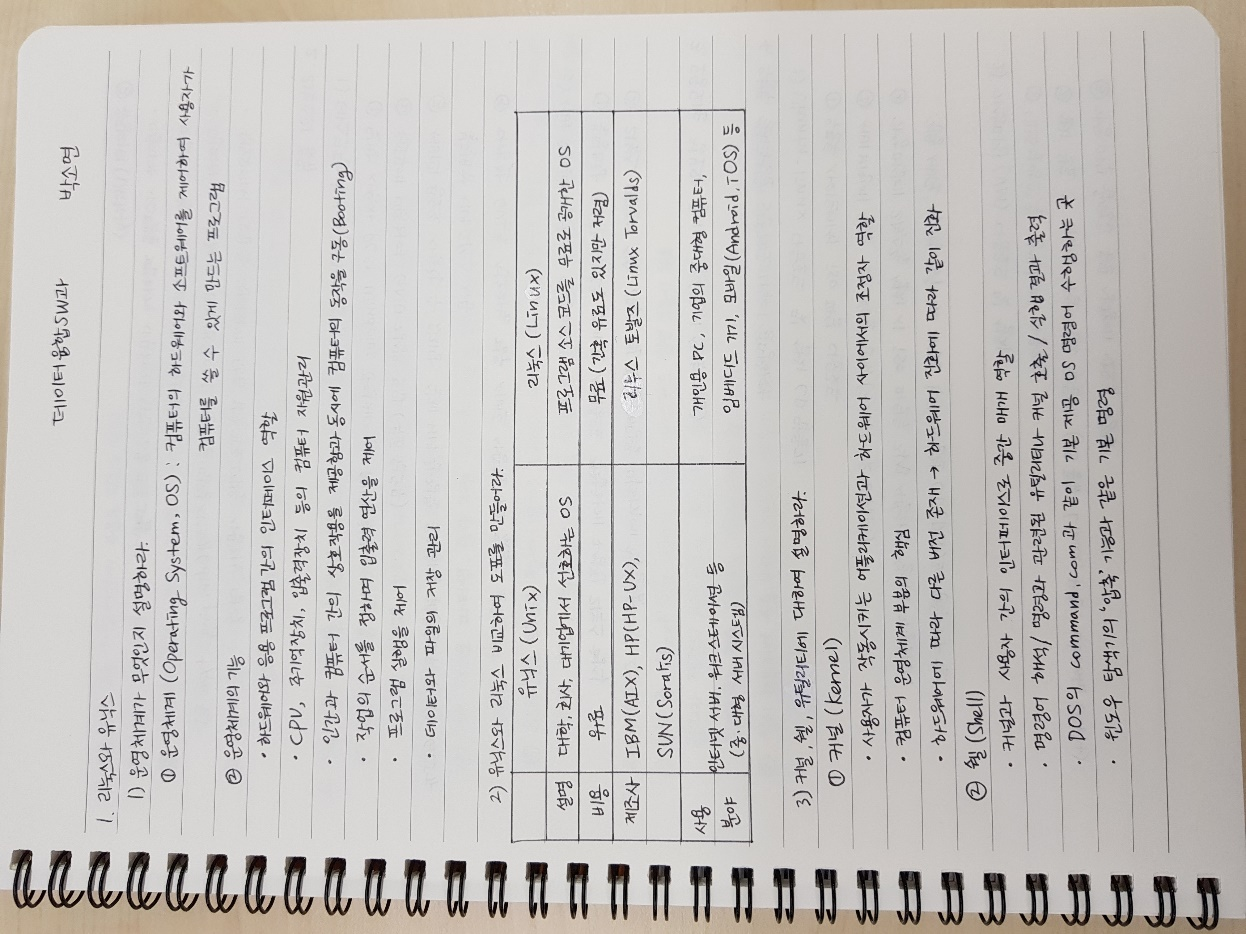 데이터융합SW과 박수현
1. 리눅스와 유닉스
1) 운영체제가 무엇인지 설명하라
① 운영체제 (Operating System, OS) : 컴퓨터의 하드웨어와 소프트웨어를 제어하여 사용자가
컴퓨터를 쓸 수 있게 만드는 프로그램
② 운영체제의 위치
• 하드웨어와 응용 프로그램 간의 인터페이스 역할
• CPU, 주기억장치, 입출력장치 등의 컴퓨터 자원관리
• 인간과 컴퓨터 간의 상호작용을 제공함과 동시에 컴퓨터의 동작을 구동(Booting)
• 작업의 순서를 정하며 입출력 연산을 제어
• 프로그램 실행을 제어
• 데이터와 파일의 저장 관리
2) 유닉스와 리눅스 비교하여 도표를 만들어라
유닉스 (Unix)
리눅스 (Linux)
설명
대학, 회사, 기업에서 사용하는 OS
프로그램 소스 코드를 무료로 공개한 OS
비용
유료
무료 (간혹 유료도 있지만 저렴)
제조사
IBM(AIX), HP(HP-UX),
SUN(Soraris)
리누스 토발즈 (Linux Torvalds)
사용
분야
인터넷 서버, 워크스테이션 등
(중·대형 서버시스템)
개인용 PC, 기업의 중대형 컴퓨터,
임베디드 기기, 모바일(Android, T OS) 등
3) 커널, 쉘, 유틸리티에 대하여 설명하라
① 커널 (Kernel)
• 사용자가 작동시키는 애플리케이션과 하드웨어 사이에서 조정자 역할
• 컴퓨터 운영체제의 핵심
• 하드웨어의 따라 다른 버전 존재 → 하드웨어의 따라 커널이 코드의 집합
② 쉘 (Shell)
• 커널과 사용자 간의 인터페이스 같은 매개 역할
• 명령어 해석/ 명령과 프로그램 실행할 때 입출력 / 실행 결과 출력
• DOS의 command.com과 같이 기본 OS 명령어 수행하는 것
• 강조성 메시지나, 입력된 기호와 같은 기본 명령